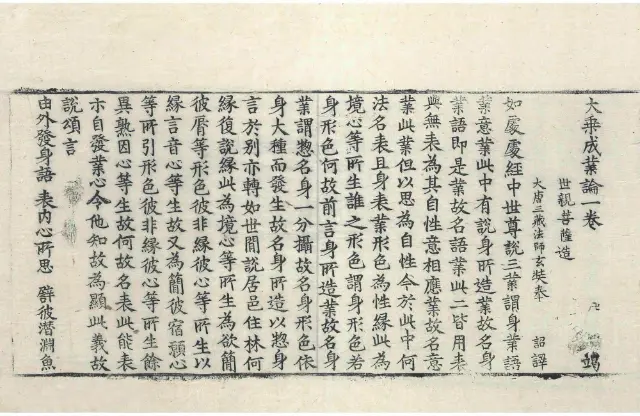 大乘成業論一卷 竭
世親菩薩造
大唐三藏法師玄奘奉 詔譯
如處處經中世尊說三業謂身業語
業意業此中有說身所造業故名身
業語即是業故名語業此二皆用表
與無表為其自性意相應業故名意
業此業但以思為自性今於此中何
法名表且身表業形色為性緣此為
境心等所生誰之形色謂身形色若
身形色何故前言身所造業故名身
業謂惣名身一分攝故名身形色依
身大種而發生故名身所造以惣身
言於別亦轉如世間說居邑住林何
緣復說緣此為境心等所生為欲簡
彼脣等形色彼非緣彼心等所生以
緣言音心等生故又為簡彼宿願心
等所引形色彼非緣彼心等所生餘
異熟因心等生故何故名表此能表
示自發業心令他知故為顯此義故
說頌言
由外發身語 表內心所思 譬彼潛淵魚